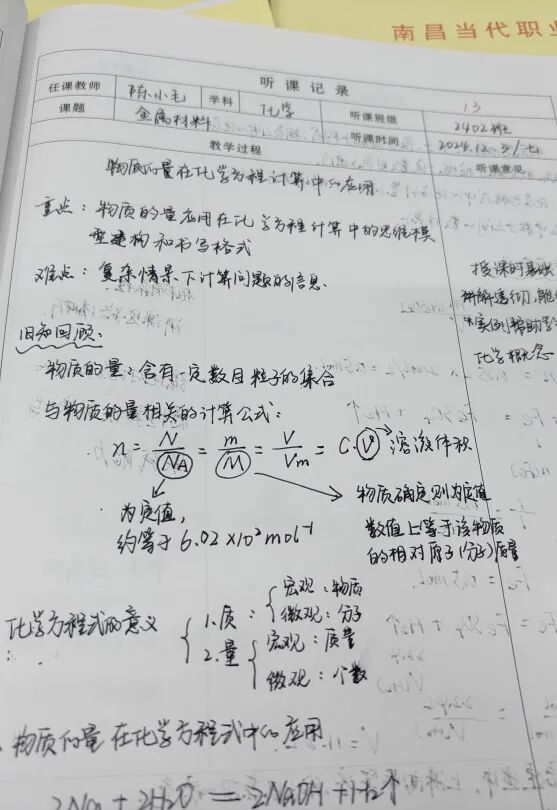 南昌当代职业
听课记录
13
任课教师 陈小毛 学科 化学 听课班级 2402班
课题 金属材料 听课时间 2024.12.3/
教学过程 听课意见
物质的量在化学方程计算中的应用
重点：物质的量应用在化学方程计算中的思维模
型建构和书写格式
难点：复杂情景下计算问题的信息.
授课时基础
讲解透彻,能
实例帮助学
化学概念
旧知回顾：
物质的量：含有一定数目粒子的集合
与物质的量相关的计算公式：
n = N/NA = m/M = V/Vm = C·V → 溶液体积
为定值,
约等于6.02×10²mol⁻¹
物质确定则为定值
数值上等于该物质
的相对原子(分子)质量
化学方程式的意义
1.质： 宏观：物质
微观：分子
2.量 宏观：质量
微观：个数
物质的量在化学方程式中的应用
2Na + 2H₂O = 2NaOH + H₂↑